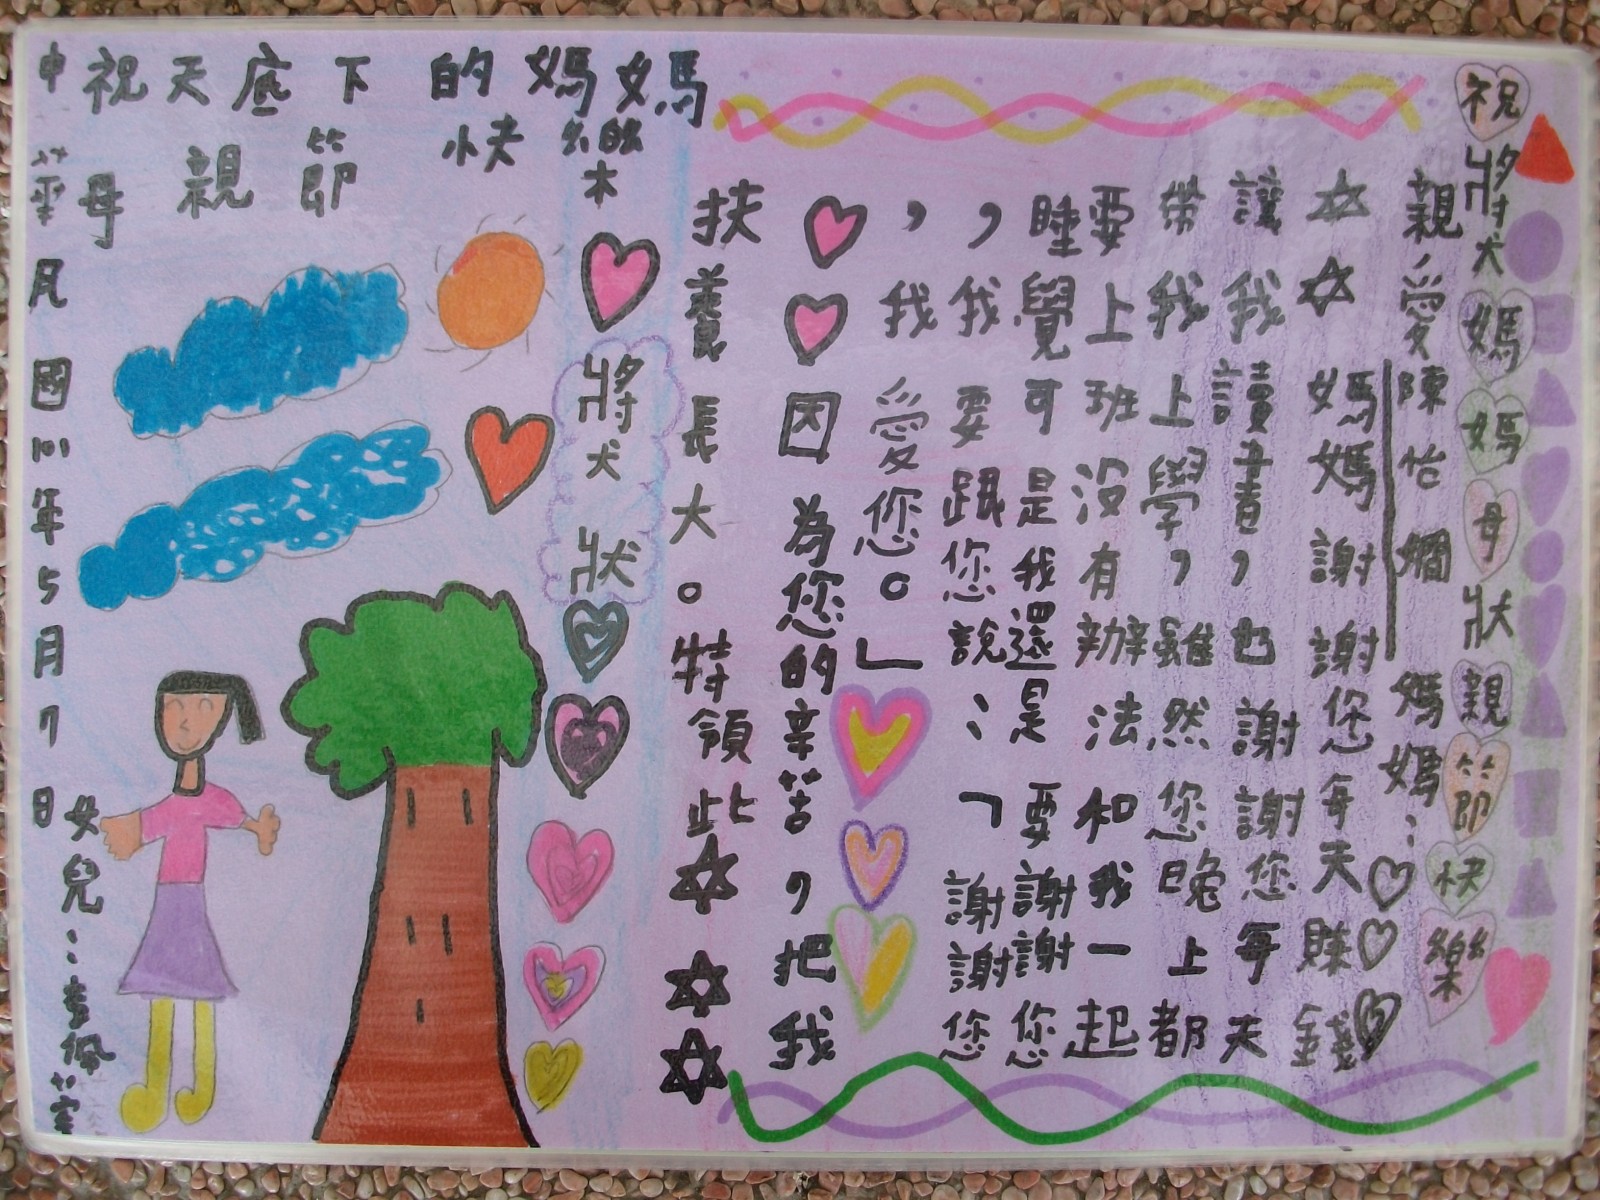 祝獎媽媽母狀親節快樂
親愛陳怡嫺媽媽：
☆☆媽媽謝謝您每天賺錢
讓我讀書，也謝謝您每天
帶我上學，雖然您晚上都
要上班沒有辦法和我一起
睡覺可是我還是要謝謝您
，我要跟您說：「謝謝您
，我愛您。」
因為您的辛苦，把我
扶養長大。特領此☆☆☆
獎狀
祝天底下的媽媽
母親節快樂
中華民國101年5月7日
女兒：